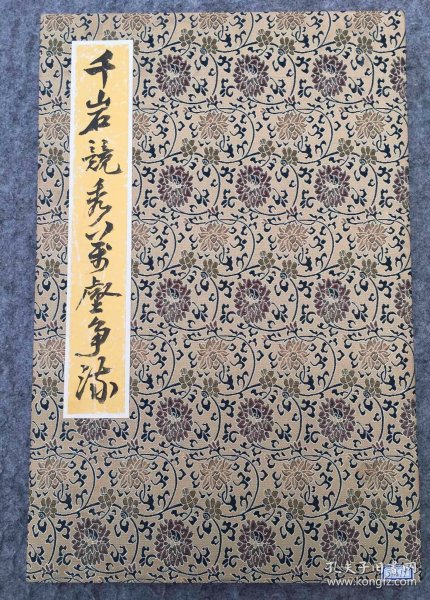 千岩競秀万壑争流
孔夫子旧书网
www.kongfz.com